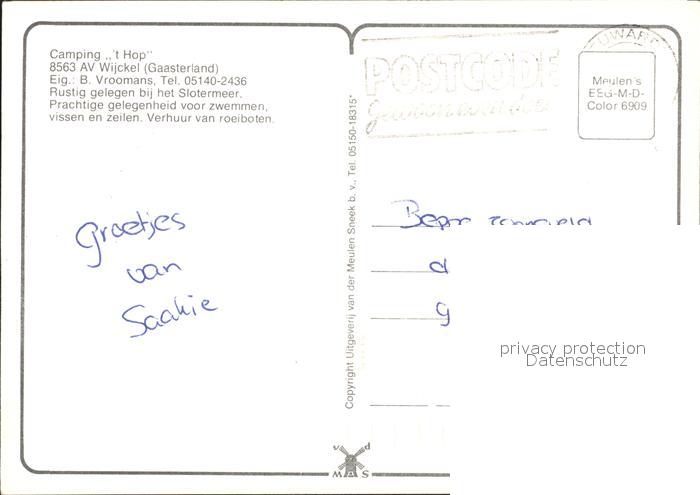 Camping ,,'t Hop"
8563 AV Wijckel (Gaasterland)
Eig.: B. Vroomans, Tel. 05140-2436
Rustig gelegen bij het Slotermeer.
Prachtige gelegenheid voor zwemmen,
vissen en zeilen. Verhuur van roeiboten.
Groetjes
van
Saakie
Copyright Uitgeverij van der Meulen Sneek b.v., Tel. 05150-18315*
POSTCODE
gewoon even doen
UWARD
Meulen's
EEG-M-D-
Color 6909
d
g
privacy protection
Datenschutz
v d
MAS